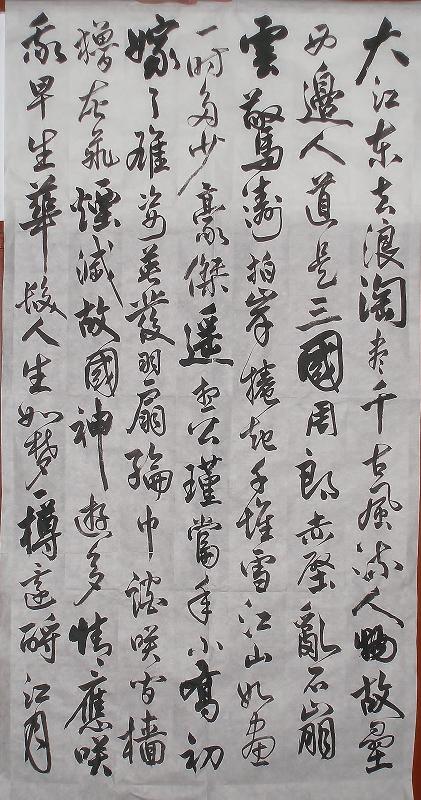 大江東去浪淘盡千古風流人物故壘
西邊人道是三國周郎赤壁亂石崩
雲驚濤拍岸捲起千堆雪江山如畫
一時多少豪傑遙想公瑾當年小喬初
嫁了雄姿英發羽扇綸巾談笑間檣
櫓灰飛煙滅故國神遊多情應笑
我早生華髮人生如夢一樽還酹江月